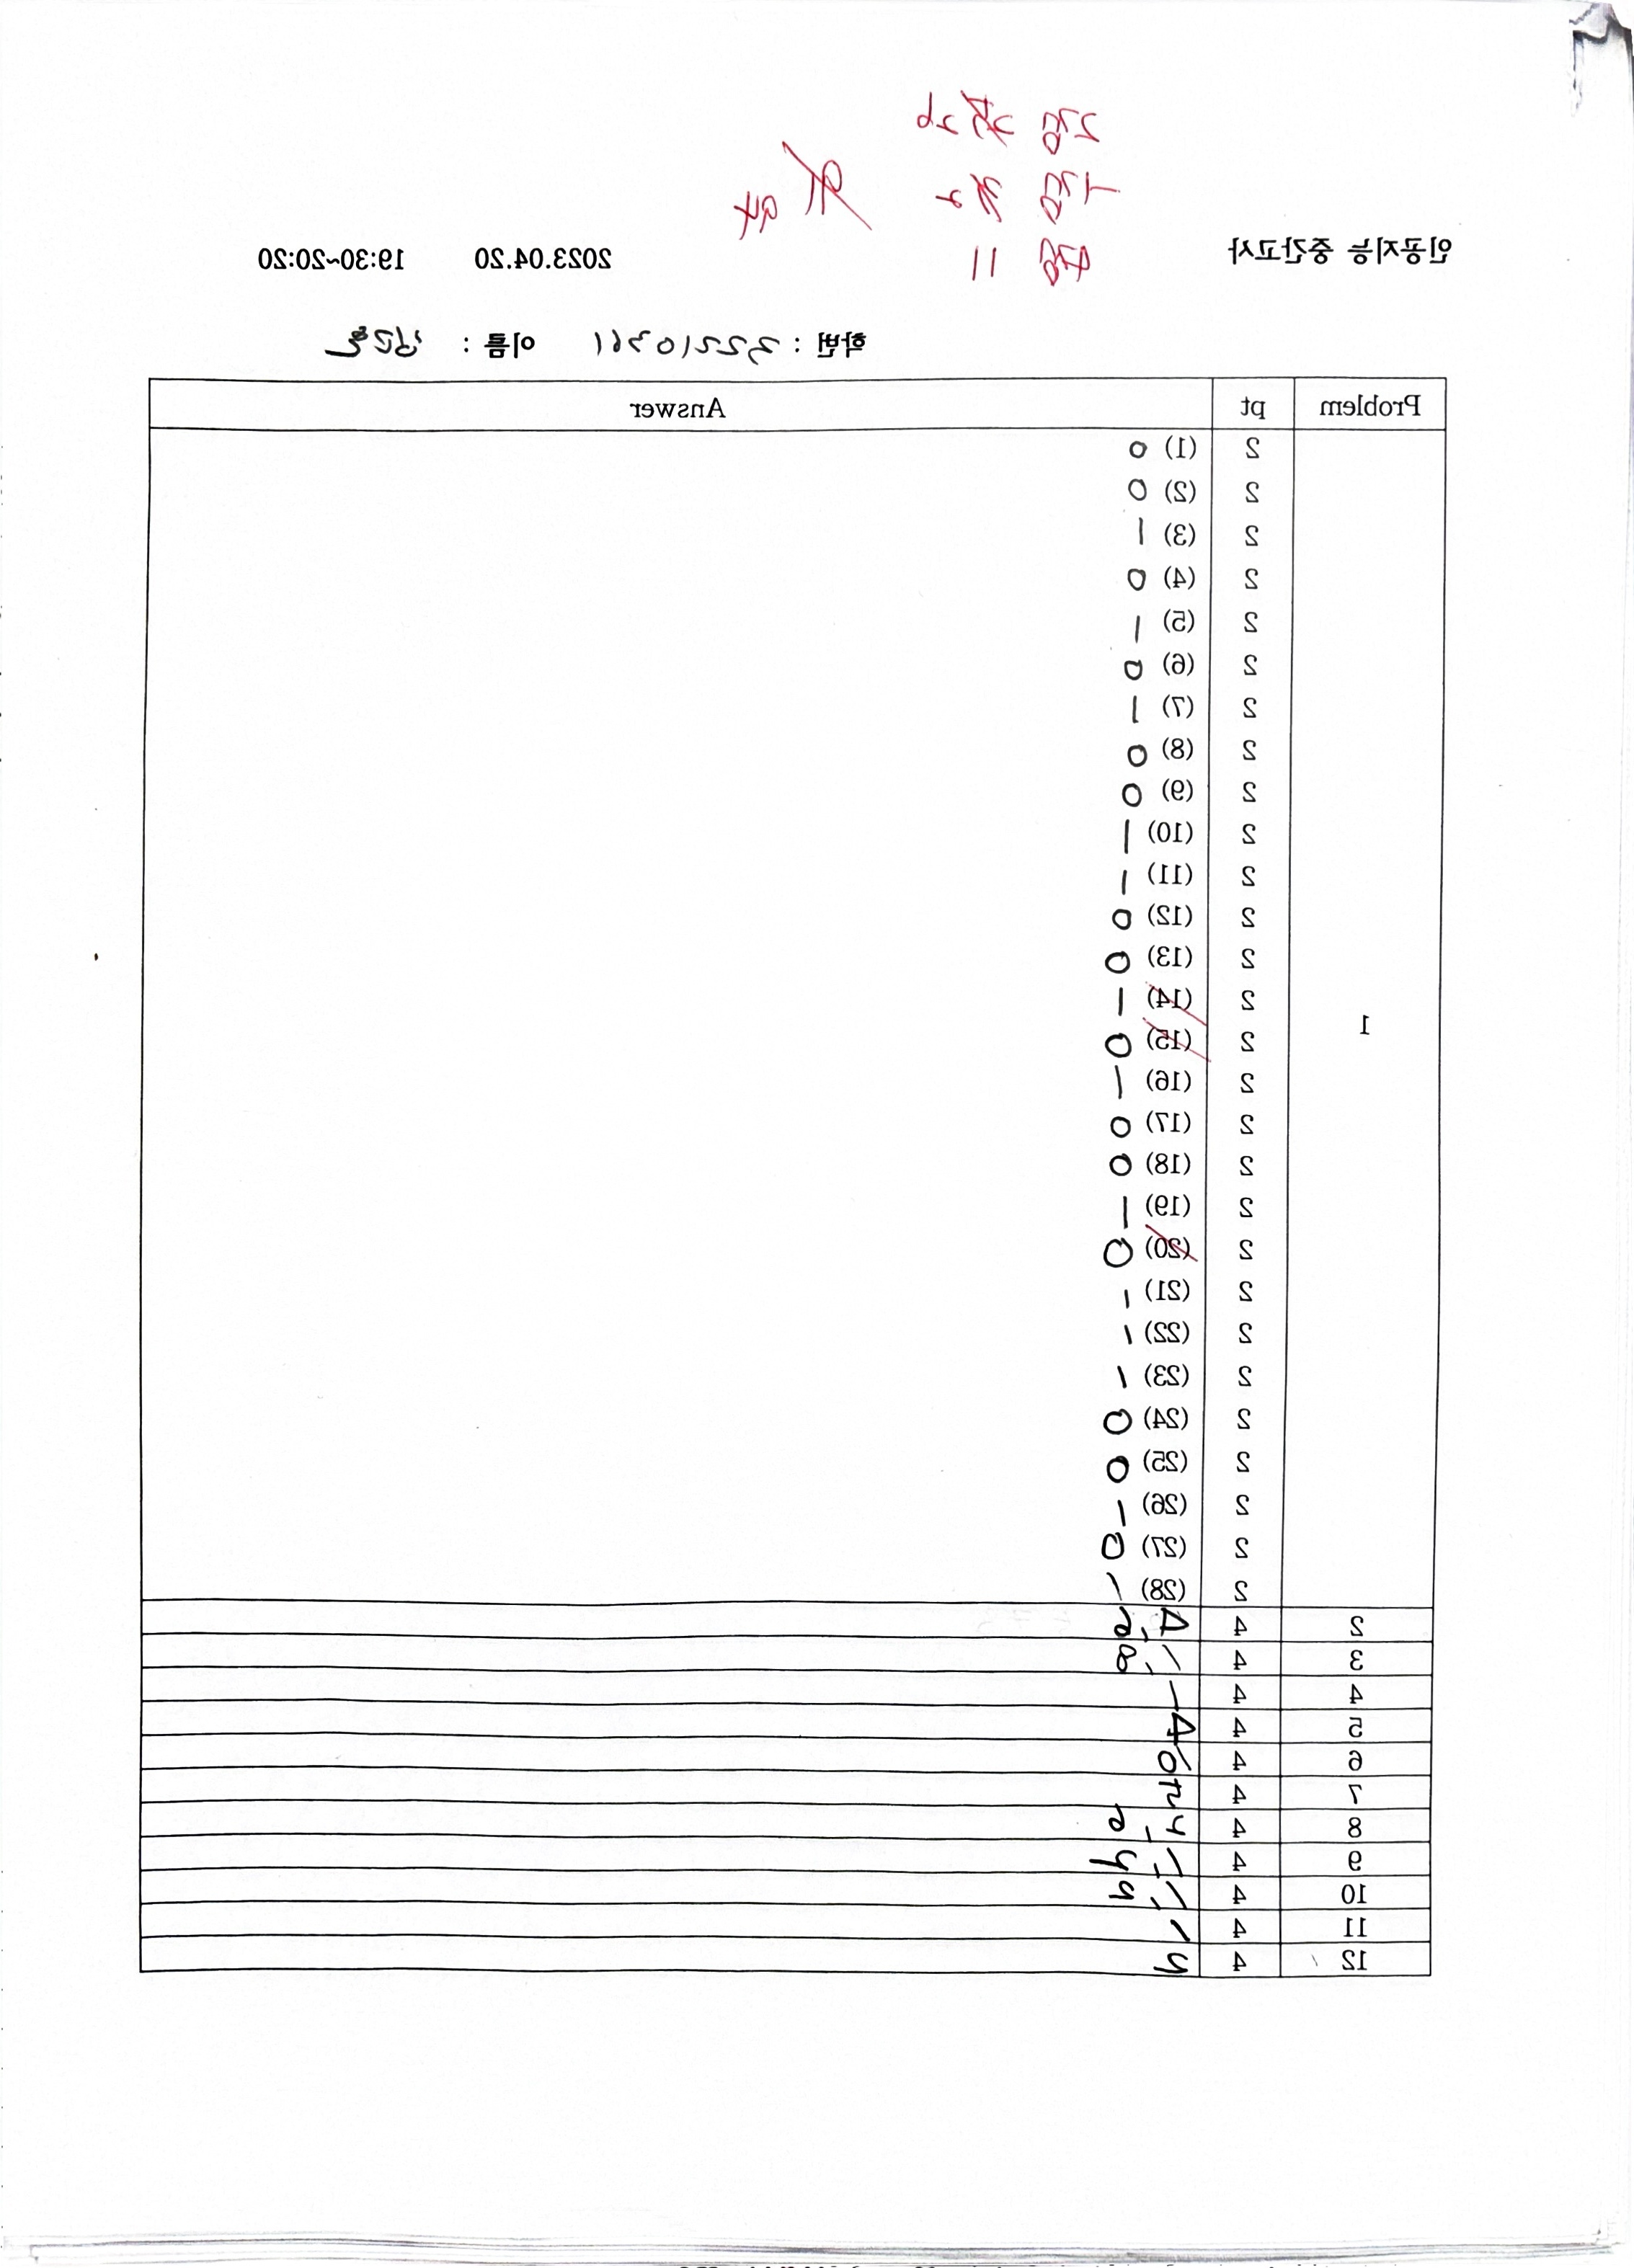 2점 26
1점 2
4점 11
94
인공지능 중간고사 2023.04.20 19:30~20:20
학번 : 32210361 이름 :
Problem pt Answer
1
2 (1) 0
2 (2) 0
2 (3) 1
2 (4) 0
2 (5) 1
2 (6) 0
2 (7) 1
2 (8) 0
2 (9) 0
2 (10) 1
2 (11) 1
2 (12) 0
2 (13) 0
2 (14) 1
2 (15) 0
2 (16) 1
2 (17) 0
2 (18) 0
2 (19) 1
2 (20) 0
2 (21) 1
2 (22) 1
2 (23) 1
2 (24) 0
2 (25) 0
2 (26) 1
2 (27) 0
2 (28) 1
2 4
3 4 1, 8
4 4 1
5 4 4
6 4
7 4
8 4
9 4
10 4
11 4 1
12 4